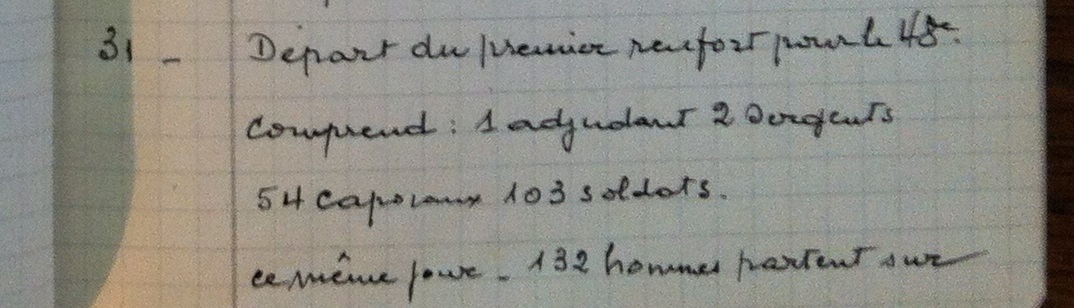 31 - Départ du premier renfort pour le 48e.
Comprend : 1 adjudant 2 Sergents
54 Caporaux 103 soldats.
ce même jour - 132 hommes partent sur